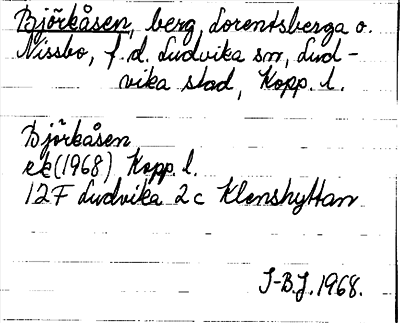 Björkåsen, berg, Lorentsberga o.
Nissbo, f.d. Ludvika sn, Lud-
vika stad, Kopp. l.
Björkåsen
ek (1968) Kopp. l.
12F Ludvika 2c Klenshyttan
I-B.J. 1968.